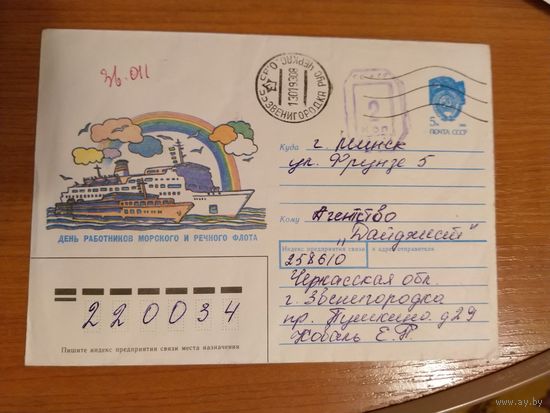 Зв. 011
ЗВЕНИГОРОДКА
2
КОП
5к
ПОЧТА СССР
Куда г. Минск
ул. Фрунзе 5
Кому Агентство
„Дайджест"
ДЕНЬ РАБОТНИКОВ МОРСКОГО И РЕЧНОГО ФЛОТА
Индекс предприятия связи и адрес отправителя
258610
Черкасская обл.
г. Звенигородка
пр. Пушкина д 29
Коваль Е.Р.
220034
Пишите индекс предприятия связи места назначения
www.ay.by